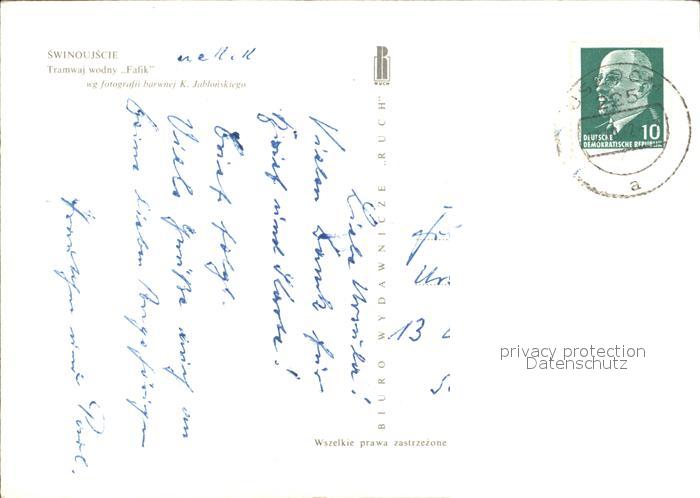 ŚWINOUJŚCIE
Tramwaj wodny „Fafik"
wg fotografii barwnej K. Jabłońskiego
RUCH
BIURO WYDAWNICZE „RUCH"
Wszelkie prawa zastrzeżone
Liebe Ursula!
Vielen Dank für
Brief und Karte!
Brief folgt.
Viele Grüße auch an
Deine lieben Angehörigen
10
DEUTSCHE
DEMOKRATISCHE REPUBLIK
a
13
privacy protection
Datenschutz